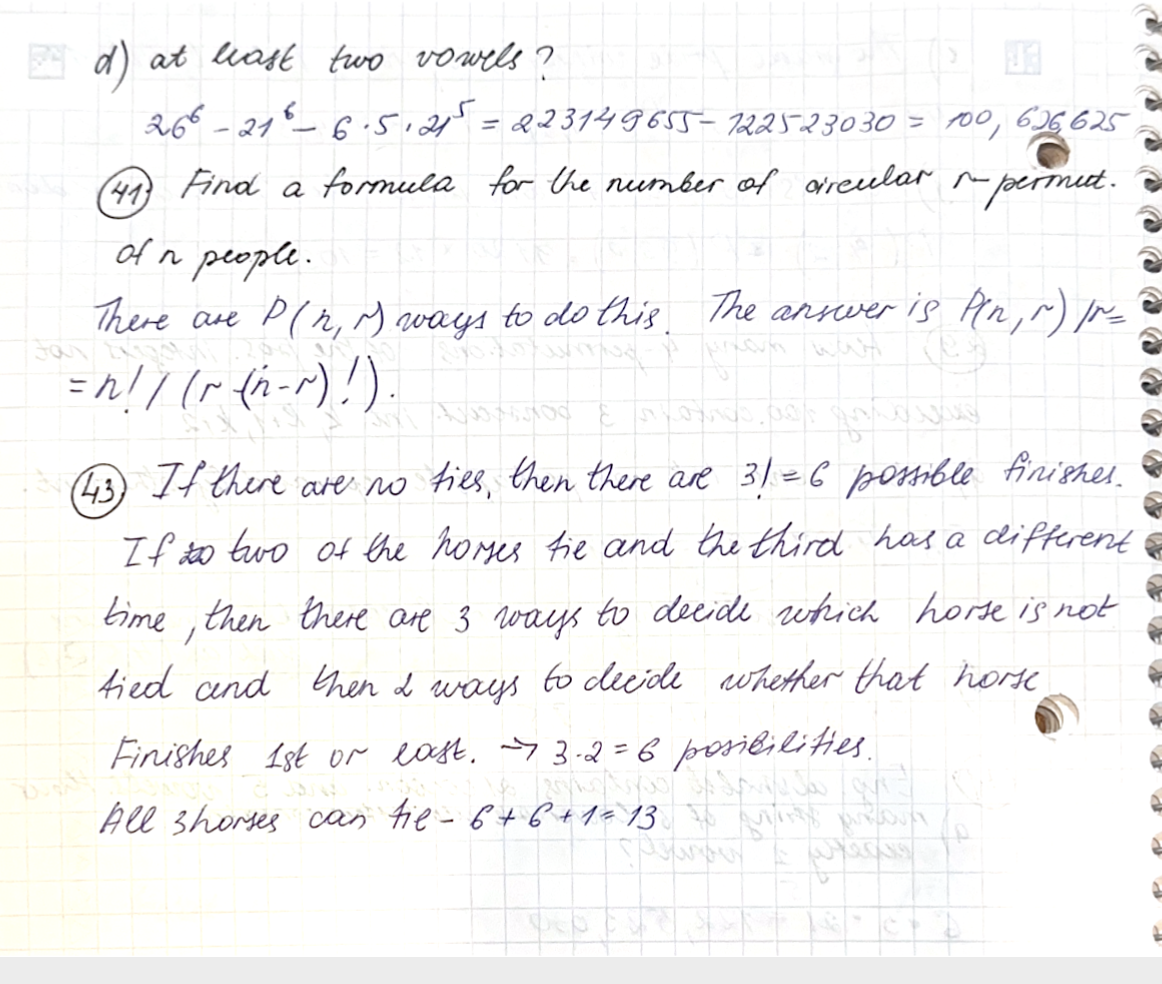 d) at least two vowels?
26⁶ - 21⁶ - 6·5·21⁵ = 223149655 - 122523030 = 100, 626,625
41) Find a formula for the number of circular r-permut.
of n people.
There are P(n, r) ways to do this. The answer is P(n, r)/r =
= n! / (r (n-r)!).
43) If there are no ties, then there are 3! = 6 possible finishes.
If two of the horses tie and the third has a different
time, then there are 3 ways to decide which horse is not
tied and then 2 ways to decide whether that horse
finishes 1st or last. → 3·2 = 6 posibilities.
All 3 horses can tie - 6 + 6 + 1 = 13